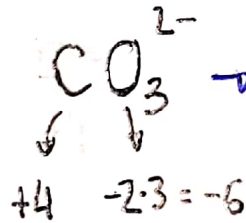 CO₃²⁻
+4 -2·3=-6